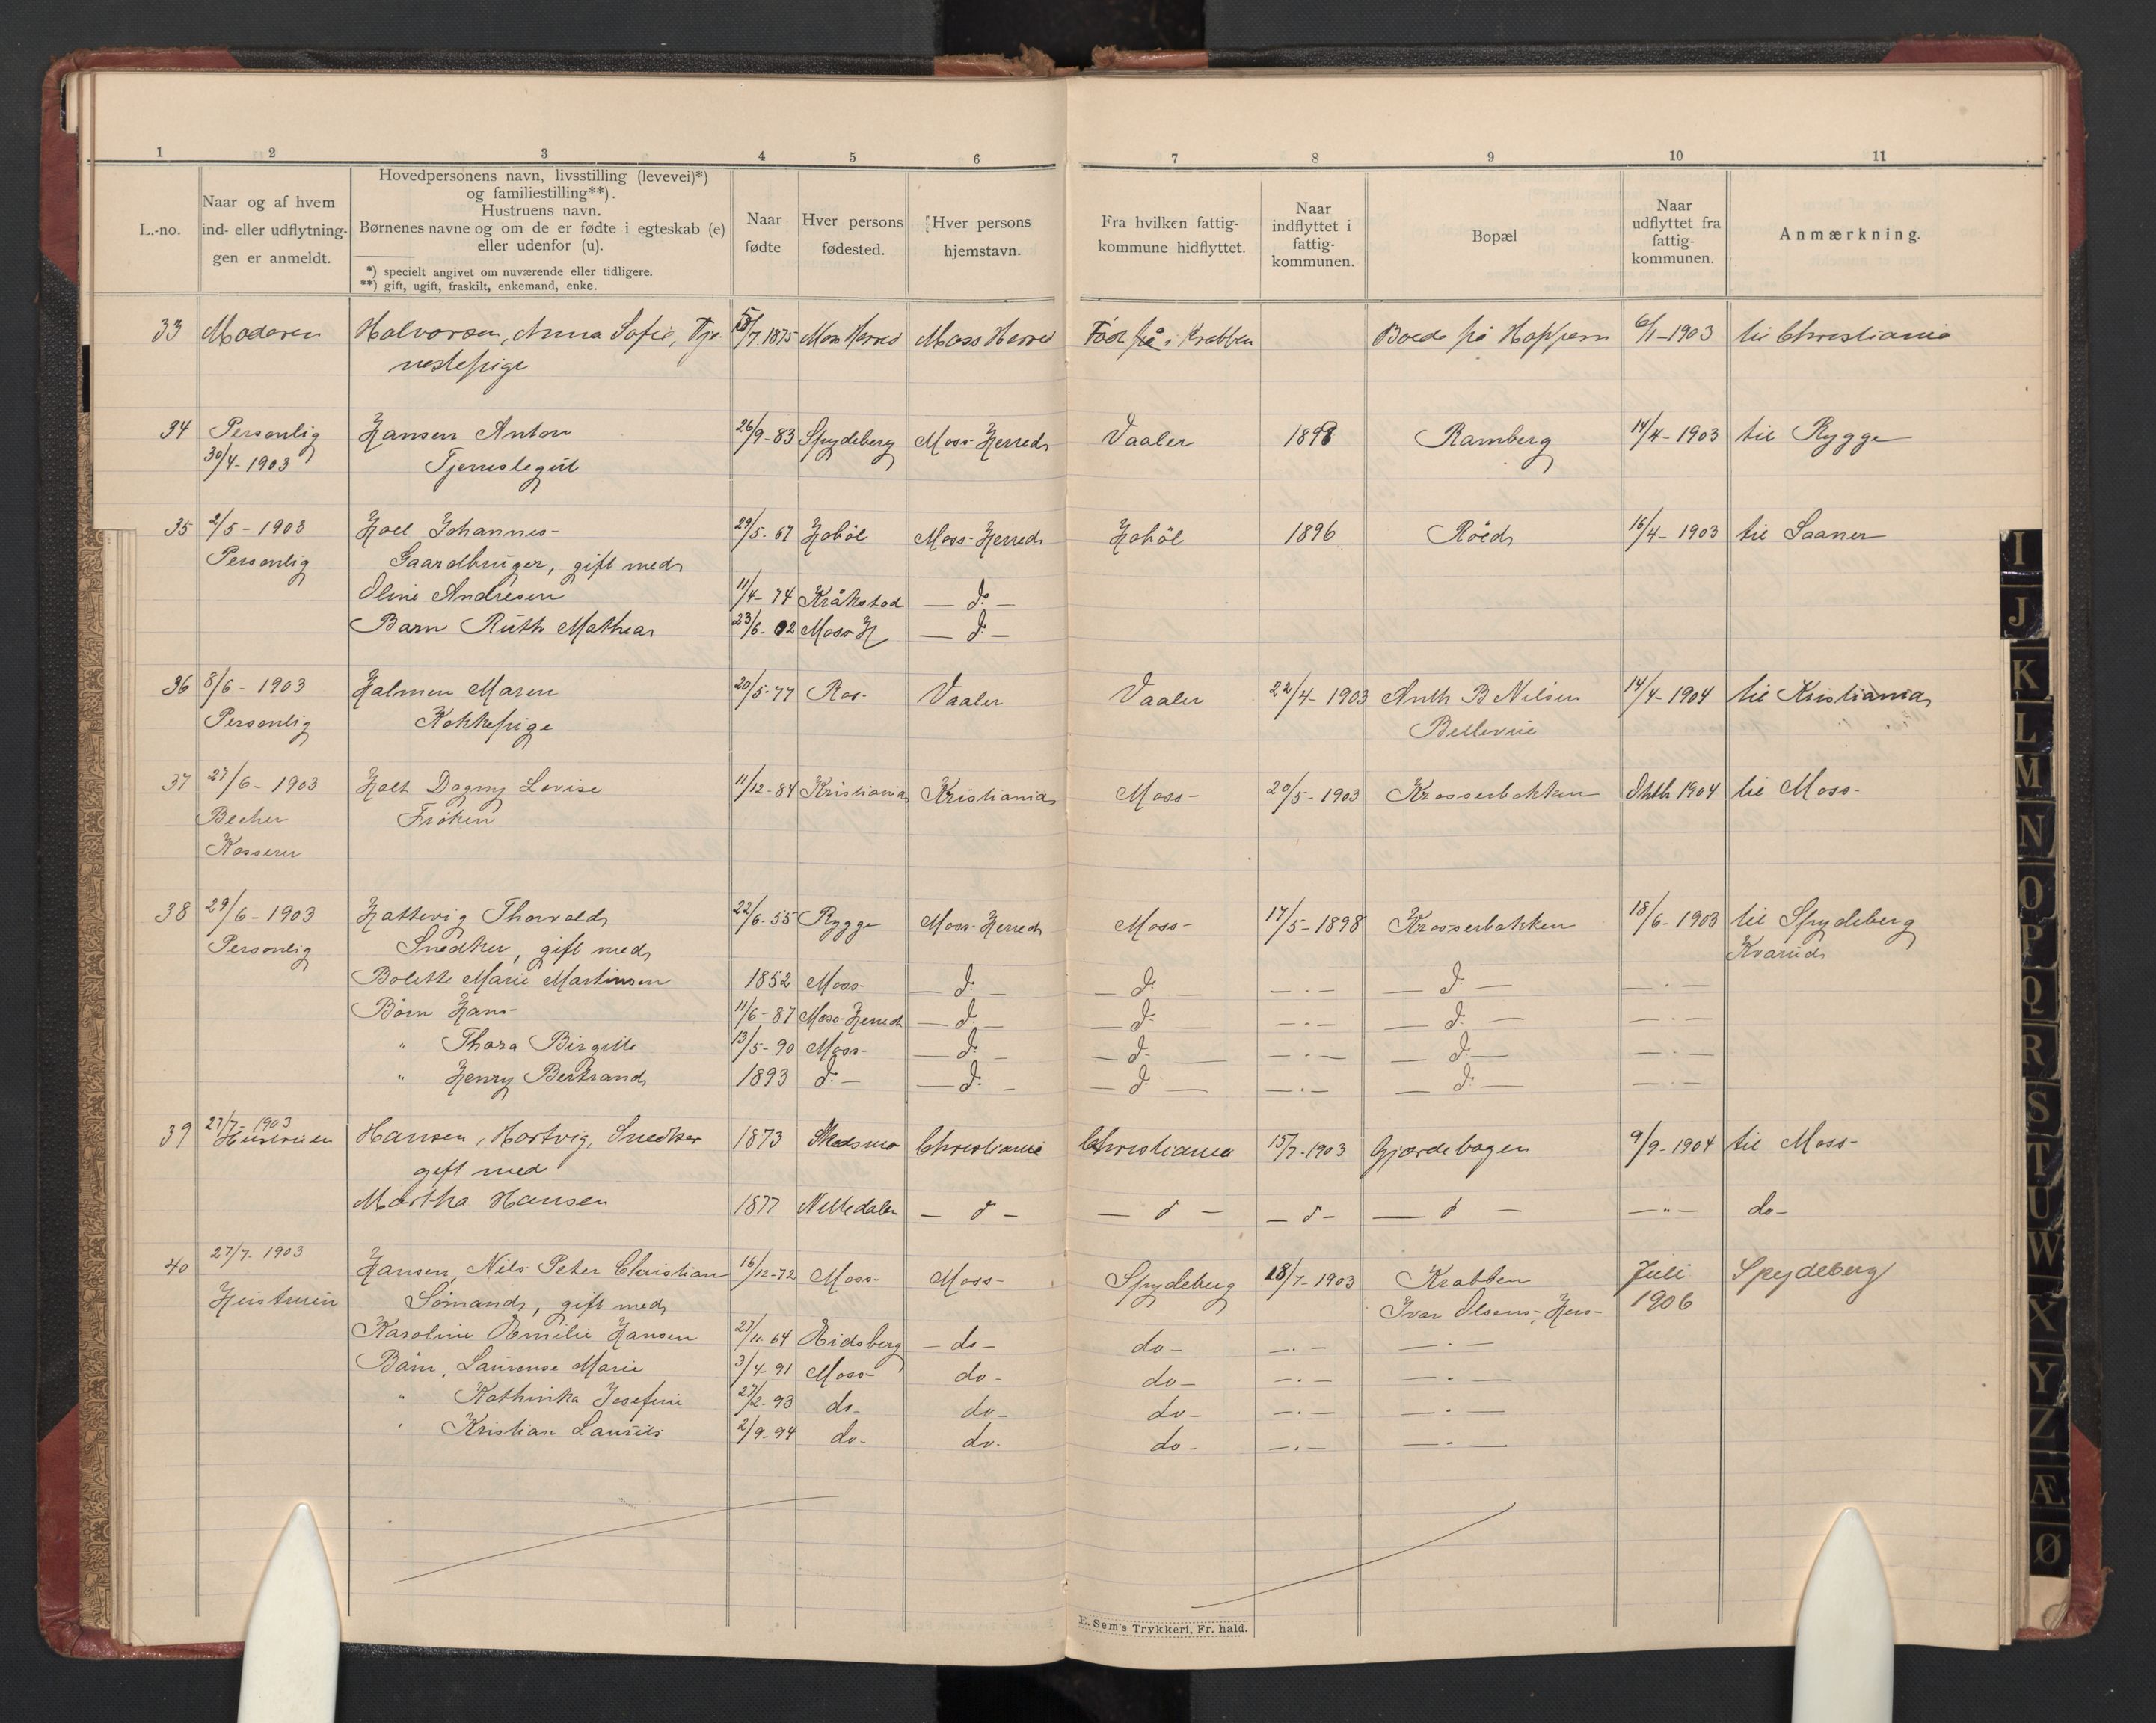 1 2 3 4 5 6 7 8 9 10 11
L.-no.
Naar og af hvem
ind- eller udflytnin-
gen er anmeldt.
Hovedpersonens navn, livsstilling (levevei)*)
og familiestilling**).
Hustruens navn.
Børnenes navne og om de er fødte i egteskab (e)
eller udenfor (u).
*) specielt angivet om nuværende eller tidligere.
**) gift, ugift, fraskilt, enkemand, enke.
Naar
fødte
Hver persons
fødested.
Hver persons
hjemstavn.
Fra hvilken fattig-
kommune hidflyttet.
Naar
indflyttet i
fattig-
kommunen.
Bopæl
Naar
udflyttet fra
fattig-
kommunen.
Anmærkning.
33 Moderen Halvorsen, Anna Sofie, Tje- 15/7.1875 Moss Herred Moss Herred Født på i Krabben Boede på Hoppern 6/1-1903 til Christiania
nestepige
34 Personlig Hansen Anton 26/9-83 Spydeberg Moss-Herred Vaaler 1898 Ramberg 14/4-1903 til Rygge
30/4-1903 Tjenestegut
35 2/5-1903 Hoel Johannes- 29/5-67 Hobøl Moss-Herred Hobøl 1896 Röed 16/4-1903 til Saaner
Personlig Gaardbruger, gift med
Oline Andresen 11/4-74 Kråkstad — do —
Barn Ruth Mathea 23/6-02 Moss-H — d: —
36 8/6-1903 Halmen Maren 20/5-77 Ros- Vaaler Vaaler 22/4-1903 Anth B Nilsen 14/4-1904 til Kristiania
Personlig Kokkepige Bellevue
37 27/6-1903 Holt Dagny Lovise 11/12-84 Kristiania Kristiania Moss- 20/5-1903 Krosserbakken Oktb 1904 til Moss-
Becher Frøken
Kasserer
38 29/6-1903 Hattevig Thorvald 22/6-55 Rygge Moss-Herred Moss- 17/5-1898 Krosserbakken 18/6-1903 til Spydeberg
Personlig Snedker, gift med Kvarud
Bolette Marie Martinsen 1852 Moss- — d: — — d: — — . — — d: — — . —
Börn Hans- 11/6-87 Moss-Herred — d: — — d: — — . — — d: — — . —
" Thora Birgitte 13/5-90 Moss- — d: — — d: — — . — — d: — — . —
" Henry Bertrand 1893 d: — — d: — — d: — — . — — d: — — . —
39 27/7-1903 Hustruen Hansen, Hartvig, Snedker 1873 Skedsmo Christiania Christiania 15/7-1903 Gjærdebagen 9/9-1904 til Moss-
gift med
Martha Hansen 1877 Nittedalen — d — — d — — d — — d — — " — do-
40 27/7-1903 Hansen, Nils Peter Christian 16/12-72 Moss- Moss- Spydeberg 18/7-1903 Krabben Juli Spydeberg
Hustruen Sömand, gift med Ivar Olsens-Hus- 1906
Karoline Emilie Hansen 27/11-64 Eidsberg — do — do- — . — — . —
Börn, Laurense Marie 3/4-91 Moss- do- do- — . — — . —
" Kathinka Josefine 27/2-93 do- do- do- — . — — . —
" Kristian Lauritz 2/9-94 do- do- do- — . — — . —
E. Sem's Trykkeri, Fr. hald.
I
J
K
L
M
N
O
P
Q
R
S
T
U
W
X
Y
Z
Æ
Ø